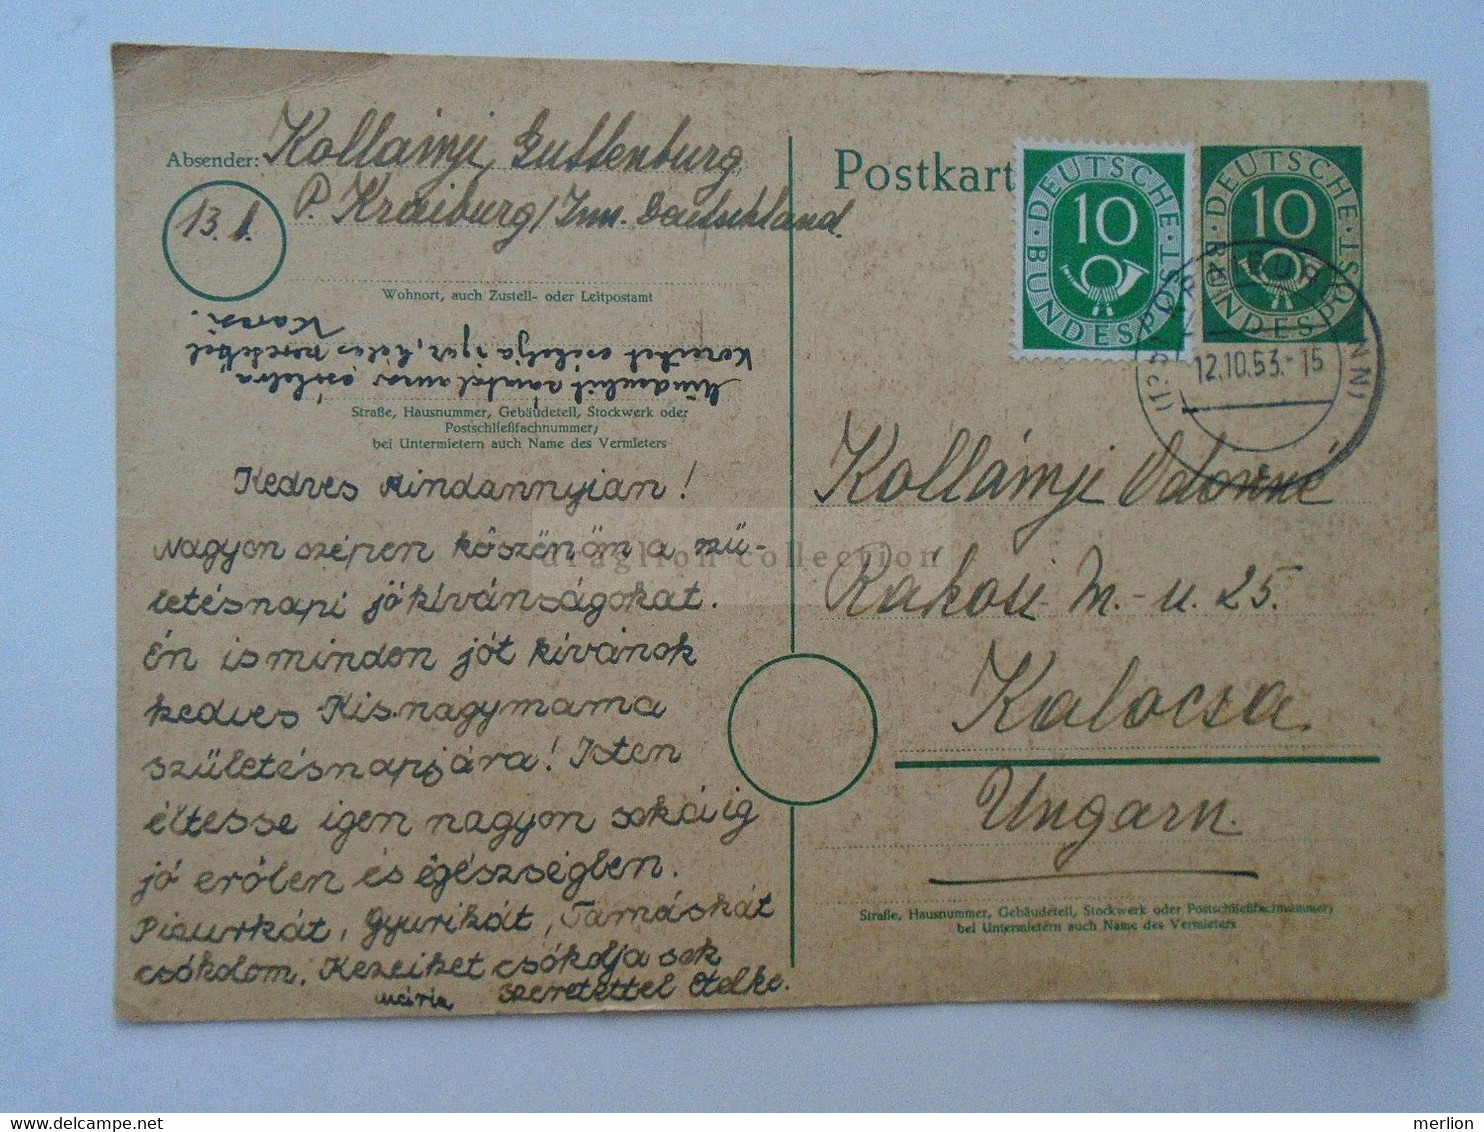 Absender: Kollányi, Guttenburg
P. Kraiburg/Inn. Deutschland.
13.
Wohnort, auch Zustell- oder Leitpostamt
Kezeiket csókolja
Straße, Hausnummer, Gebäudeteil, Stockwerk oder
Postschließfachnummer;
bei Untermietern auch Name des Vermieters
Kedves Mindannyian!
Nagyon szépen köszönöm a szü-
letésnapi jókívánságokat.
Én is minden jót kívánok
kedves Kisnagymama
születésnapjára! Isten
éltesse igen nagyon sokáig
jó erőben és egészségben.
Piourkát, Gyurikát, Tamáskát
csókolom. Kezeiket csókolja sok
Mária szeretettel Etelke.
Postkart
DEUTSCHE BUNDESPOST
10
DEUTSCHE BUNDESPOST
10
12.10.53.-15
Kollányi Ödönné
Rákosi M.-u. 25.
Kalocsa
Ungarn.
Straße, Hausnummer, Gebäudeteil, Stockwerk oder Postschließfachnummer;
bei Untermietern auch Name des Vermieters
draglion collection
merlion